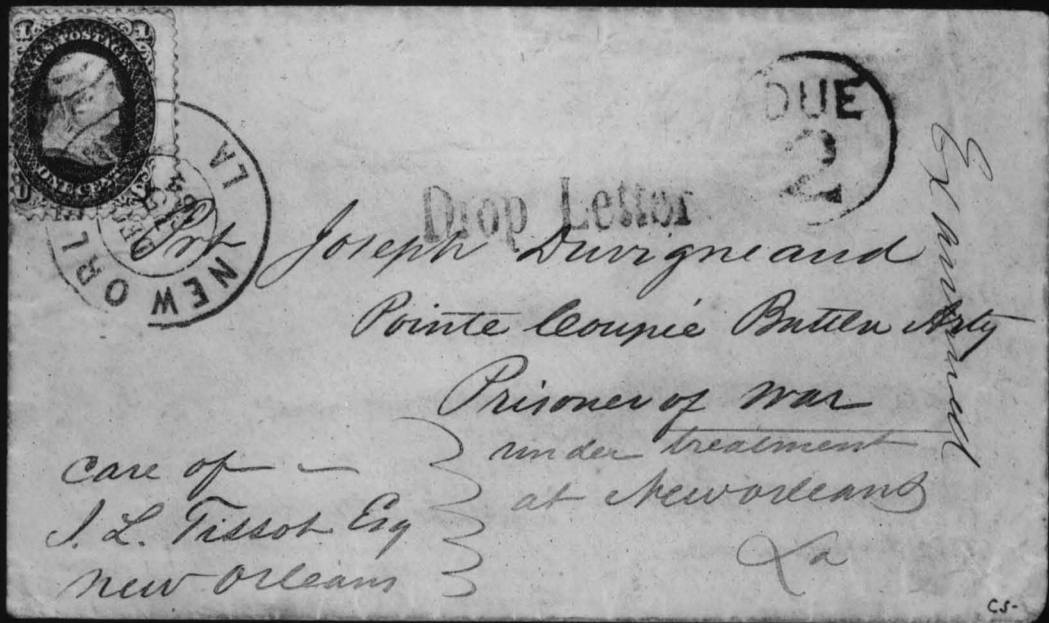 U.S. POSTAGE
NEW ORL LA
DUE
2
Drop Letter
Examined
Prt Joseph Duvigneaud
Pointe Coupée Art'y
Prisoner of war
under treatment
at New orleans
La
care of
J. L. Tissot Esq
New Orleans
CS-